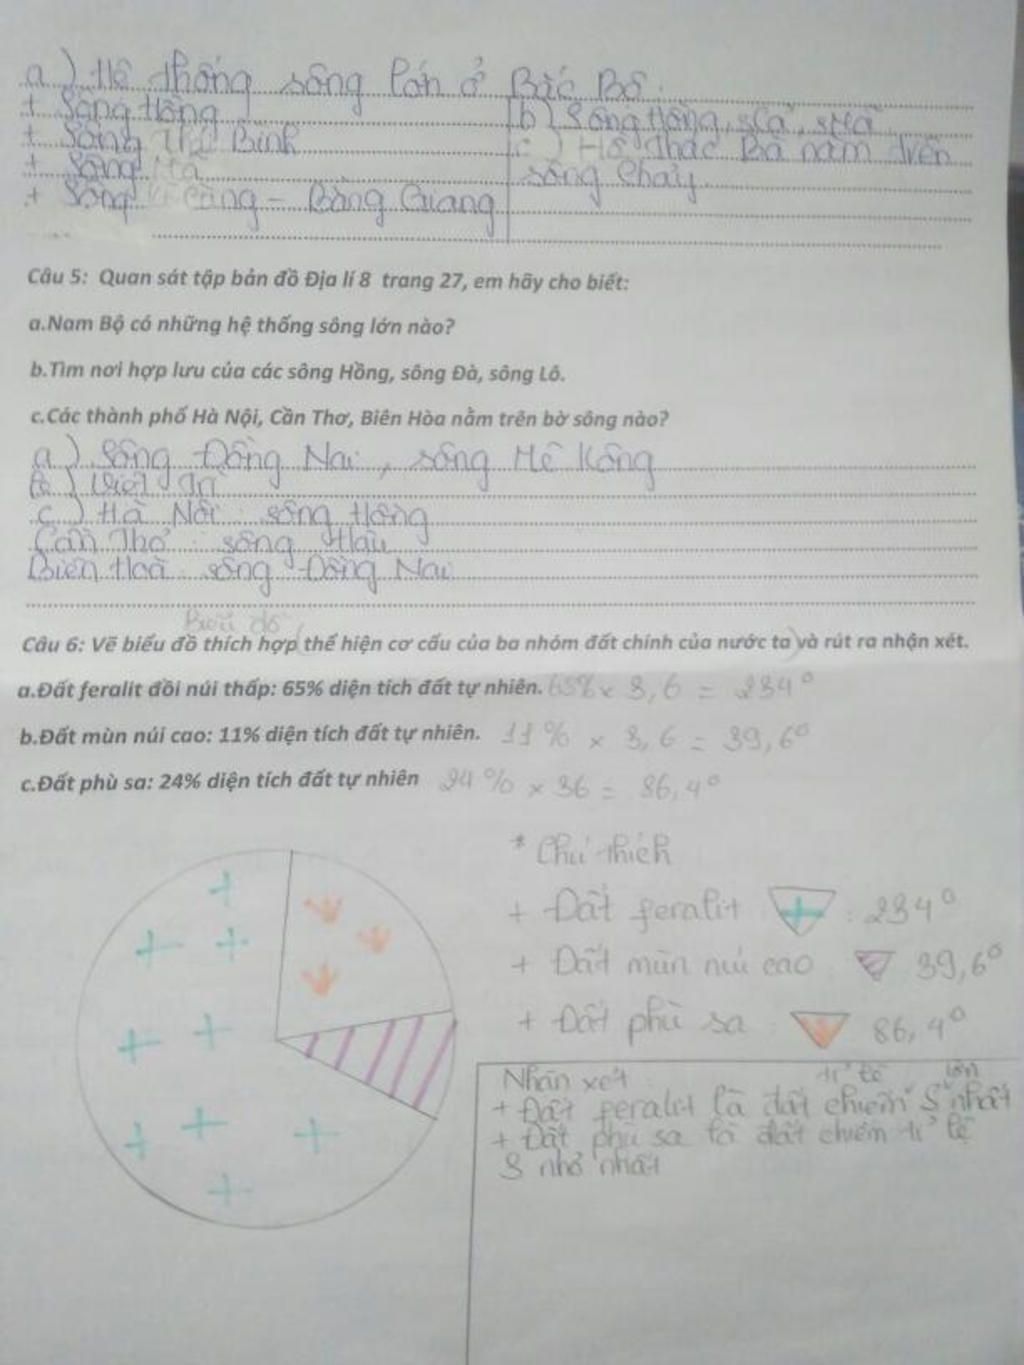 a) Hệ thống sông lớn ở Bắc Bộ.
+ Sông Hồng
+ Sông Thái Bình
+ Sông Mã
+ Sông Kì Cùng - Bằng Giang
b) Sông Hồng, s.Cả, s.Mã
c) Hồ Thác Bà nằm trên
sông Chảy.
Câu 5: Quan sát tập bản đồ Địa lí 8 trang 27, em hãy cho biết:
a.Nam Bộ có những hệ thống sông lớn nào?
b.Tìm nơi hợp lưu của các sông Hồng, sông Đà, sông Lô.
c.Các thành phố Hà Nội, Cần Thơ, Biên Hòa nằm trên bờ sông nào?
a) Sông Đồng Nai, sông Mê Kông
b) Việt Trì
c) Hà Nội: sông Hồng
Cần Thơ: sông Hậu
Biên Hoà: sông Đồng Nai
Biểu đồ
Câu 6: Vẽ biểu đồ thích hợp thể hiện cơ cấu của ba nhóm đất chính của nước ta và rút ra nhận xét.
a.Đất feralit đồi núi thấp: 65% diện tích đất tự nhiên. 65% x 3,6 = 234°
b.Đất mùn núi cao: 11% diện tích đất tự nhiên. 11% x 3,6 = 39,6°
c.Đất phù sa: 24% diện tích đất tự nhiên 24% x 36 = 86,4°
* Chú thích
+ Đất feralit : 234°
+ Đất mùn núi cao 39,6°
+ Đất phù sa : 86,4°
Nhận xét
tỉ lệ lớn
+ Đất feralit là đất chiếm S nhất
+ Đất phù sa là đất chiếm tỉ lệ
S nhỏ nhất